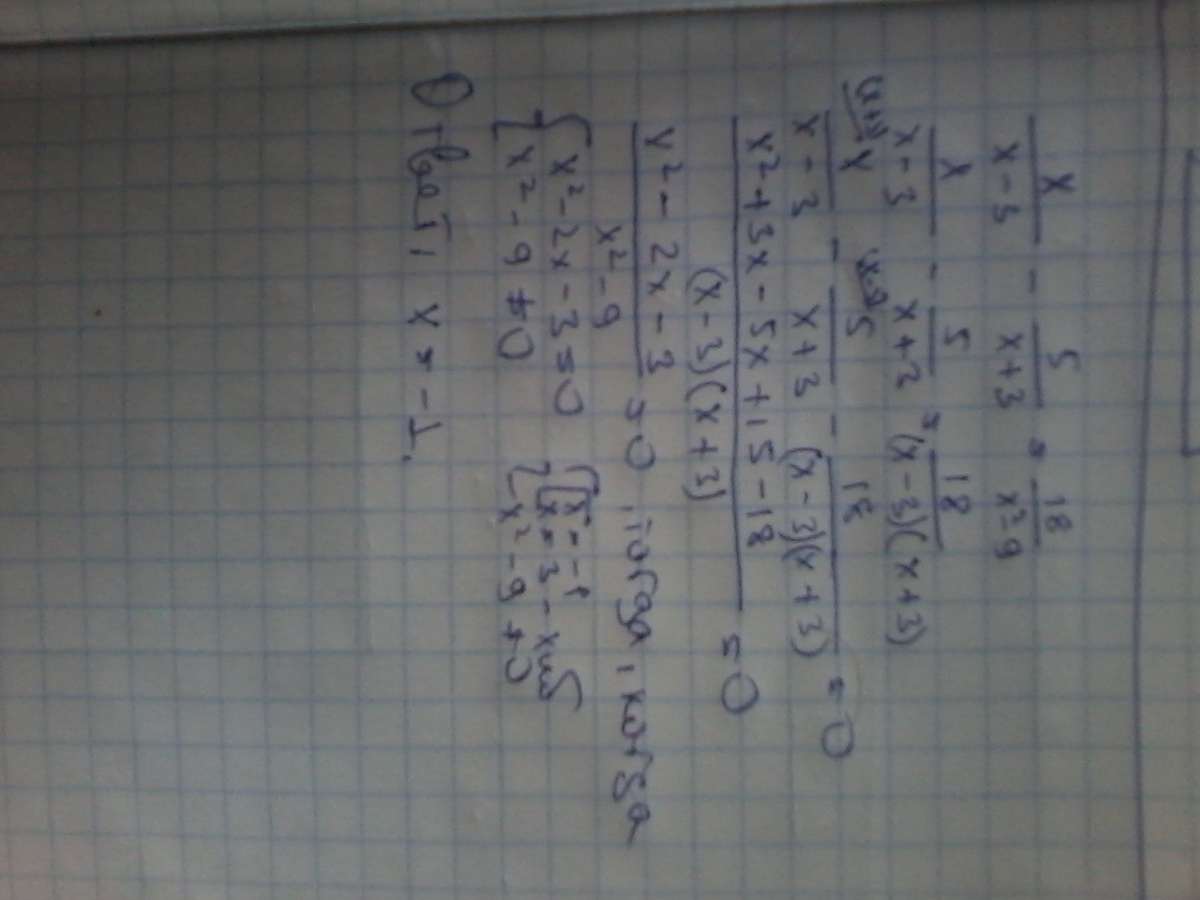 x/(x-3) - 5/(x+3) = 18/(x²-9)
x/(x-3) - 5/(x+3) = 18/((x-3)(x+3))
(x+3) x/(x-3) - (x-3) 5/(x+3) - 18/((x-3)(x+3)) = 0
(x²+3x-5x+15-18)/((x-3)(x+3)) = 0
(x²-2x-3)/(x²-9) = 0, тогда, когда
{ x²-2x-3=0 { [ x=-1
{ x²-9≠0 [ x=3 -
x²-9≠0
Ответ: x=-1.